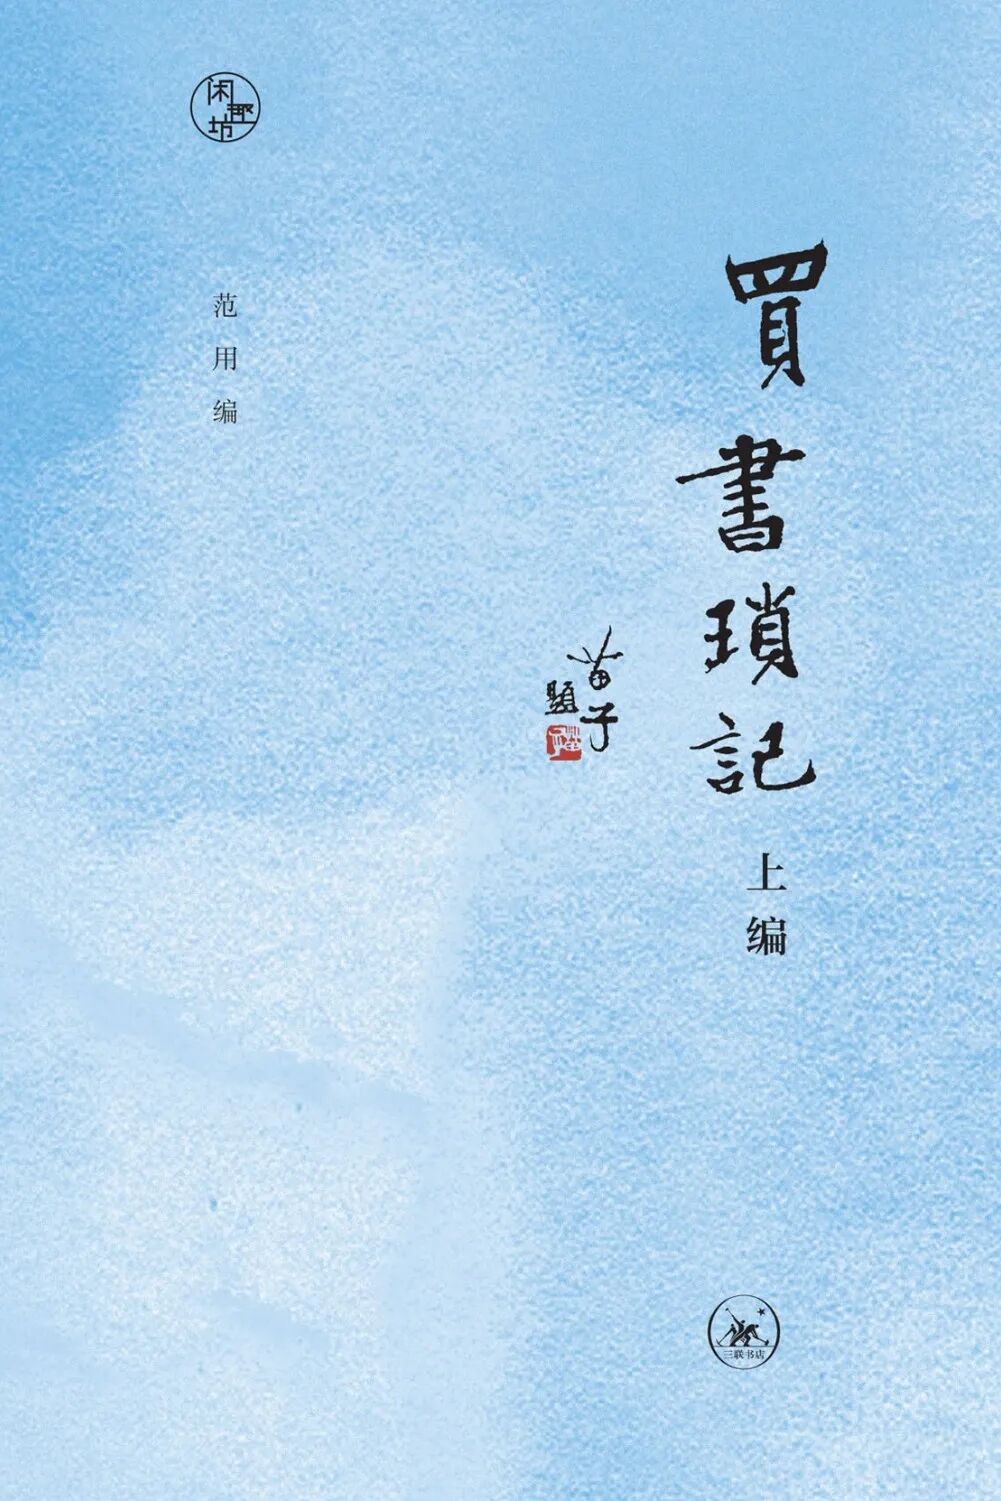 買書瑣記
上编
苗子
題
苗子
范用编
闲趣坊
三联书店